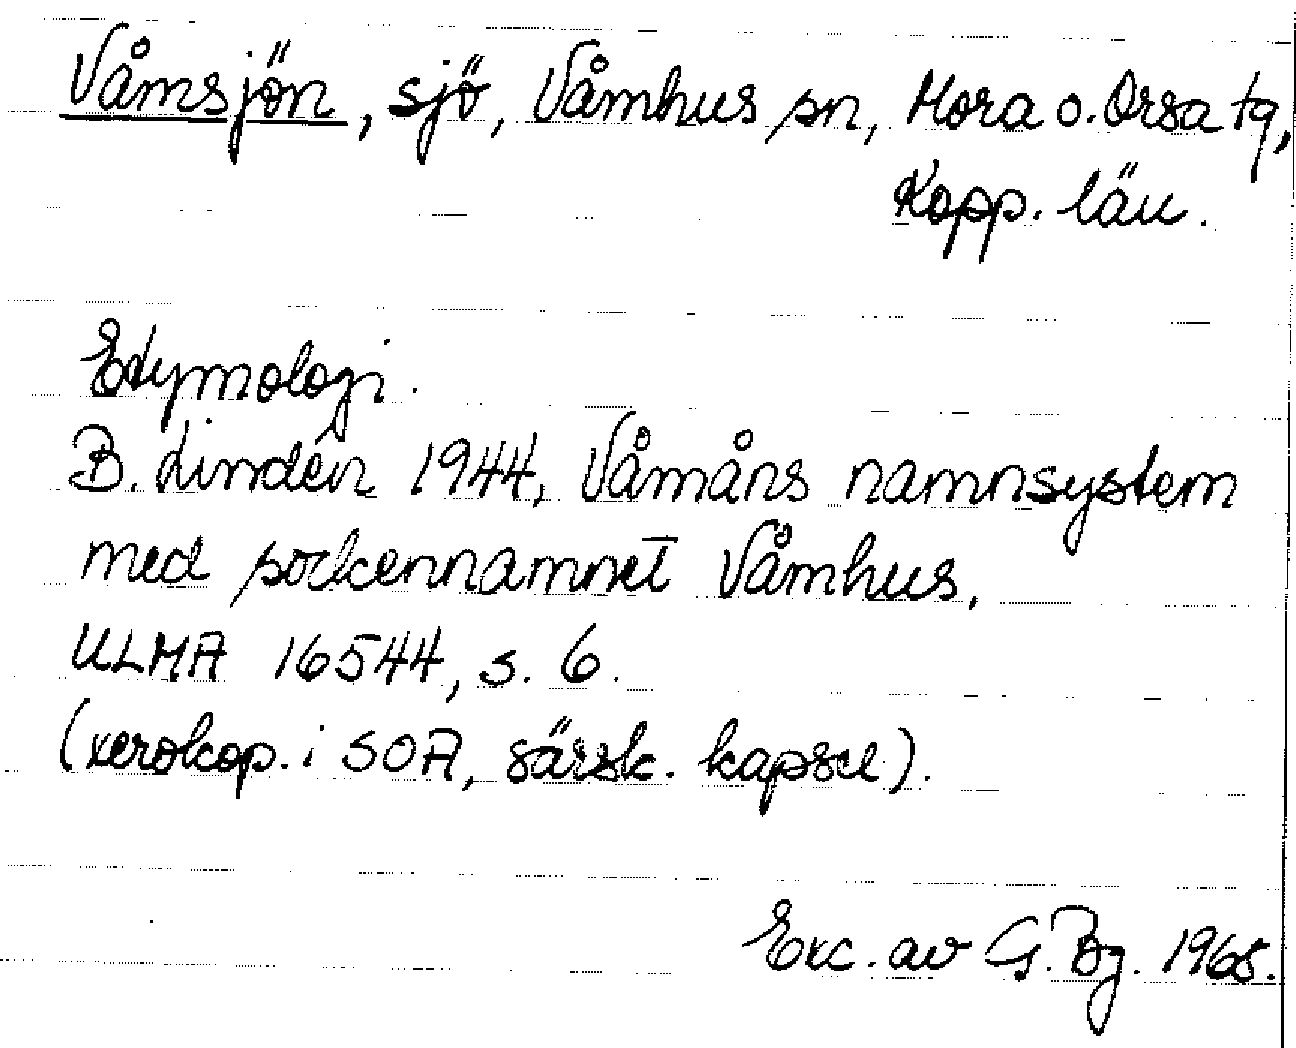 Våmsjön, sjö, Våmhus sn, Mora o. Orsa tg,
Kopp. län.
Etymologi.
B. Lindén 1944, Våmåns namnsystem
med sockennamnet Våmhus,
ULMA 16544, s. 6.
(xerokop. i SOA, särsk. kapsel).
Exc. av G. Bg. 1968.